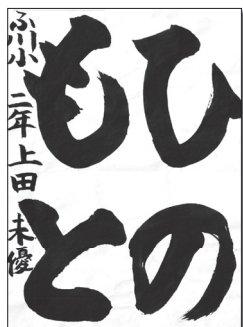 ひの
もと
ふ小 二年 上田 未優